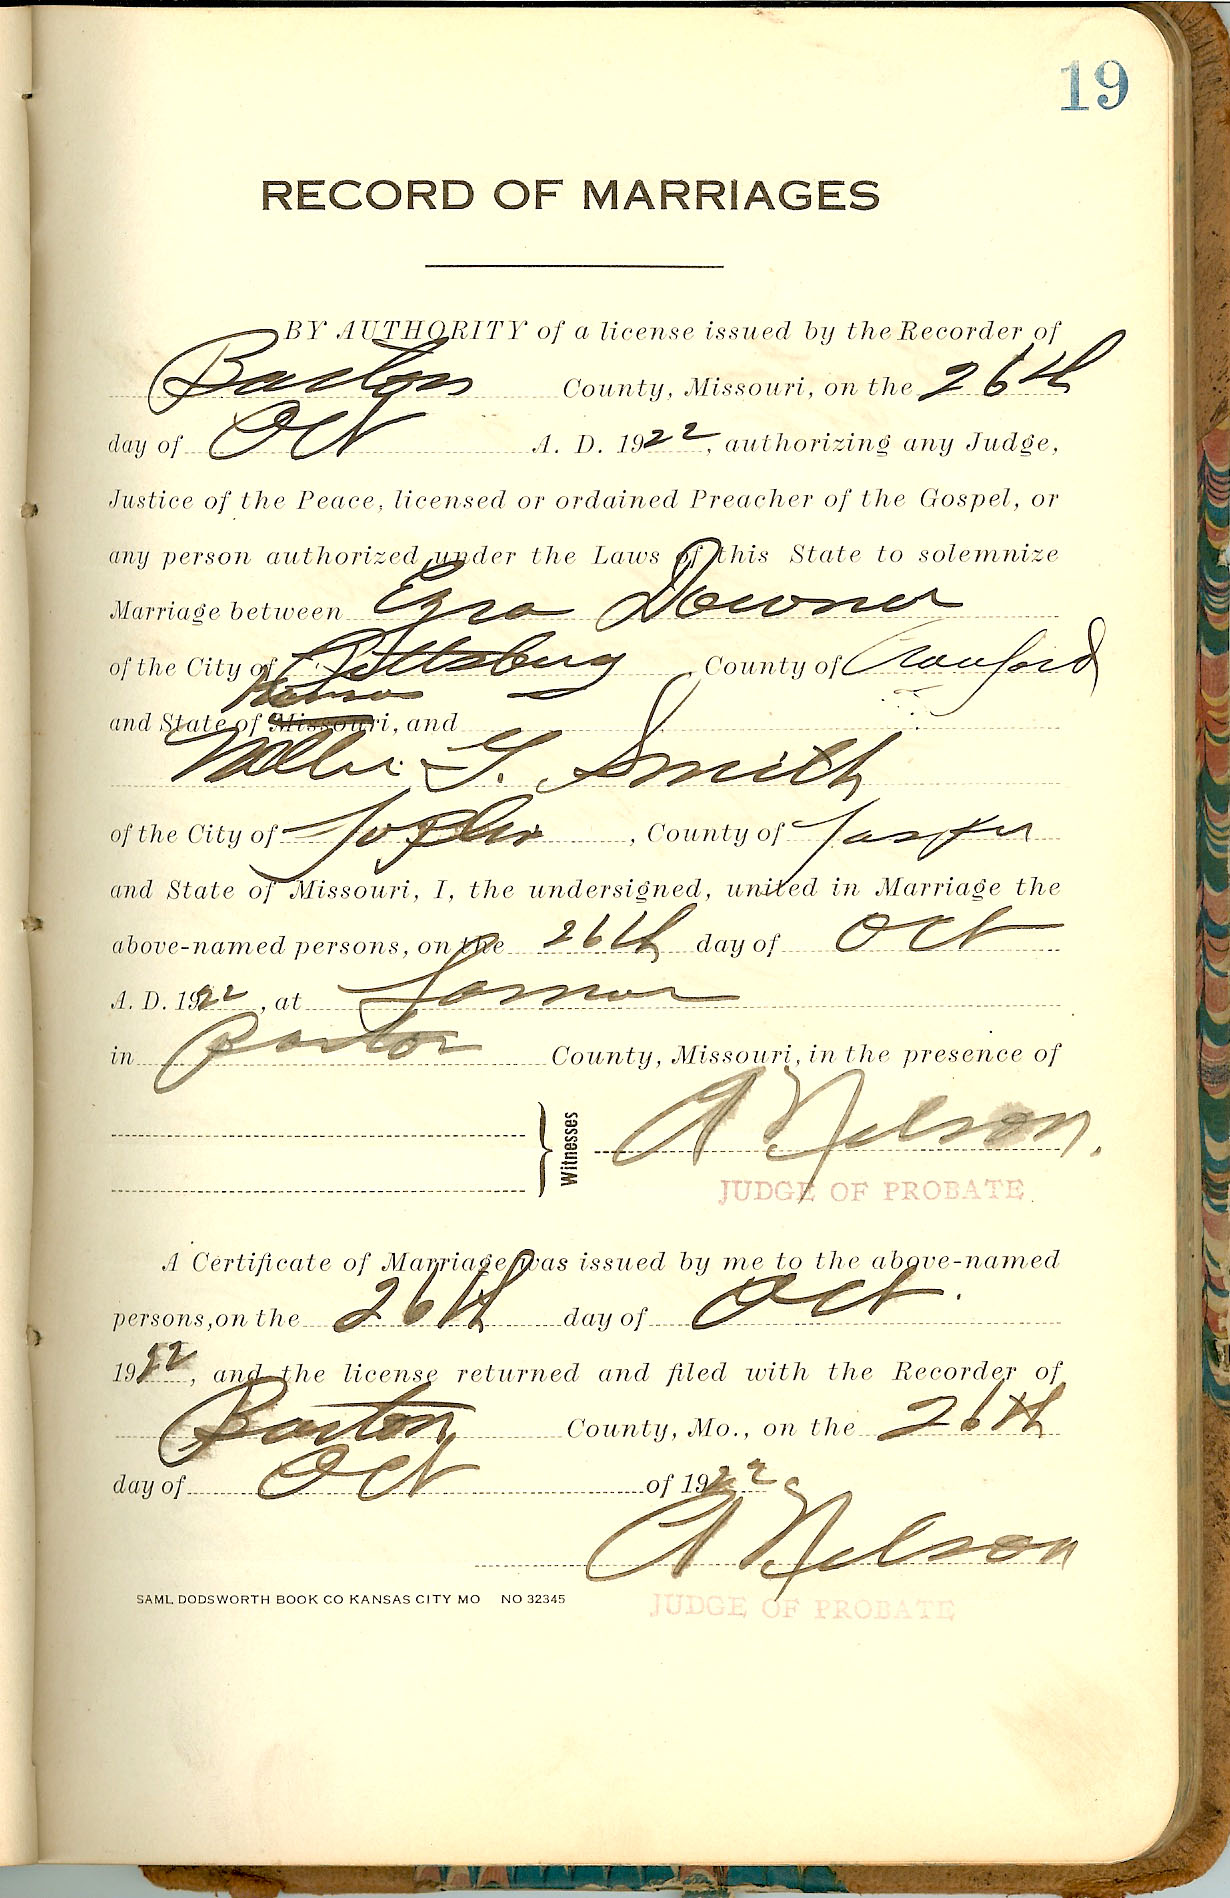 19
RECORD OF MARRIAGES
BY AUTHORITY of a license issued by the Recorder of
Barton County, Missouri, on the 26th
day of Oct A. D. 1922, authorizing any Judge,
Justice of the Peace, licensed or ordained Preacher of the Gospel, or
any person authorized under the Laws of this State to solemnize
Marriage between Ezra Downer
of the City of Pittsburg, County of Crawford
Kansas
and State of Missouri, and
G. Smith
of the City of Joplin, County of Jasper
and State of Missouri, I, the undersigned, united in Marriage the
above-named persons, on the 26th day of Oct
A. D. 1922, at Lamar
in Barton County, Missouri, in the presence of
Witnesses A Nelson.
JUDGE OF PROBATE
A Certificate of Marriage was issued by me to the above-named
persons, on the 26th day of Oct.
1922, and the license returned and filed with the Recorder of
Barton County, Mo., on the 26th
day of Oct of 1922
A Nelson
SAML DODSWORTH BOOK CO KANSAS CITY MO NO 32345
JUDGE OF PROBATE